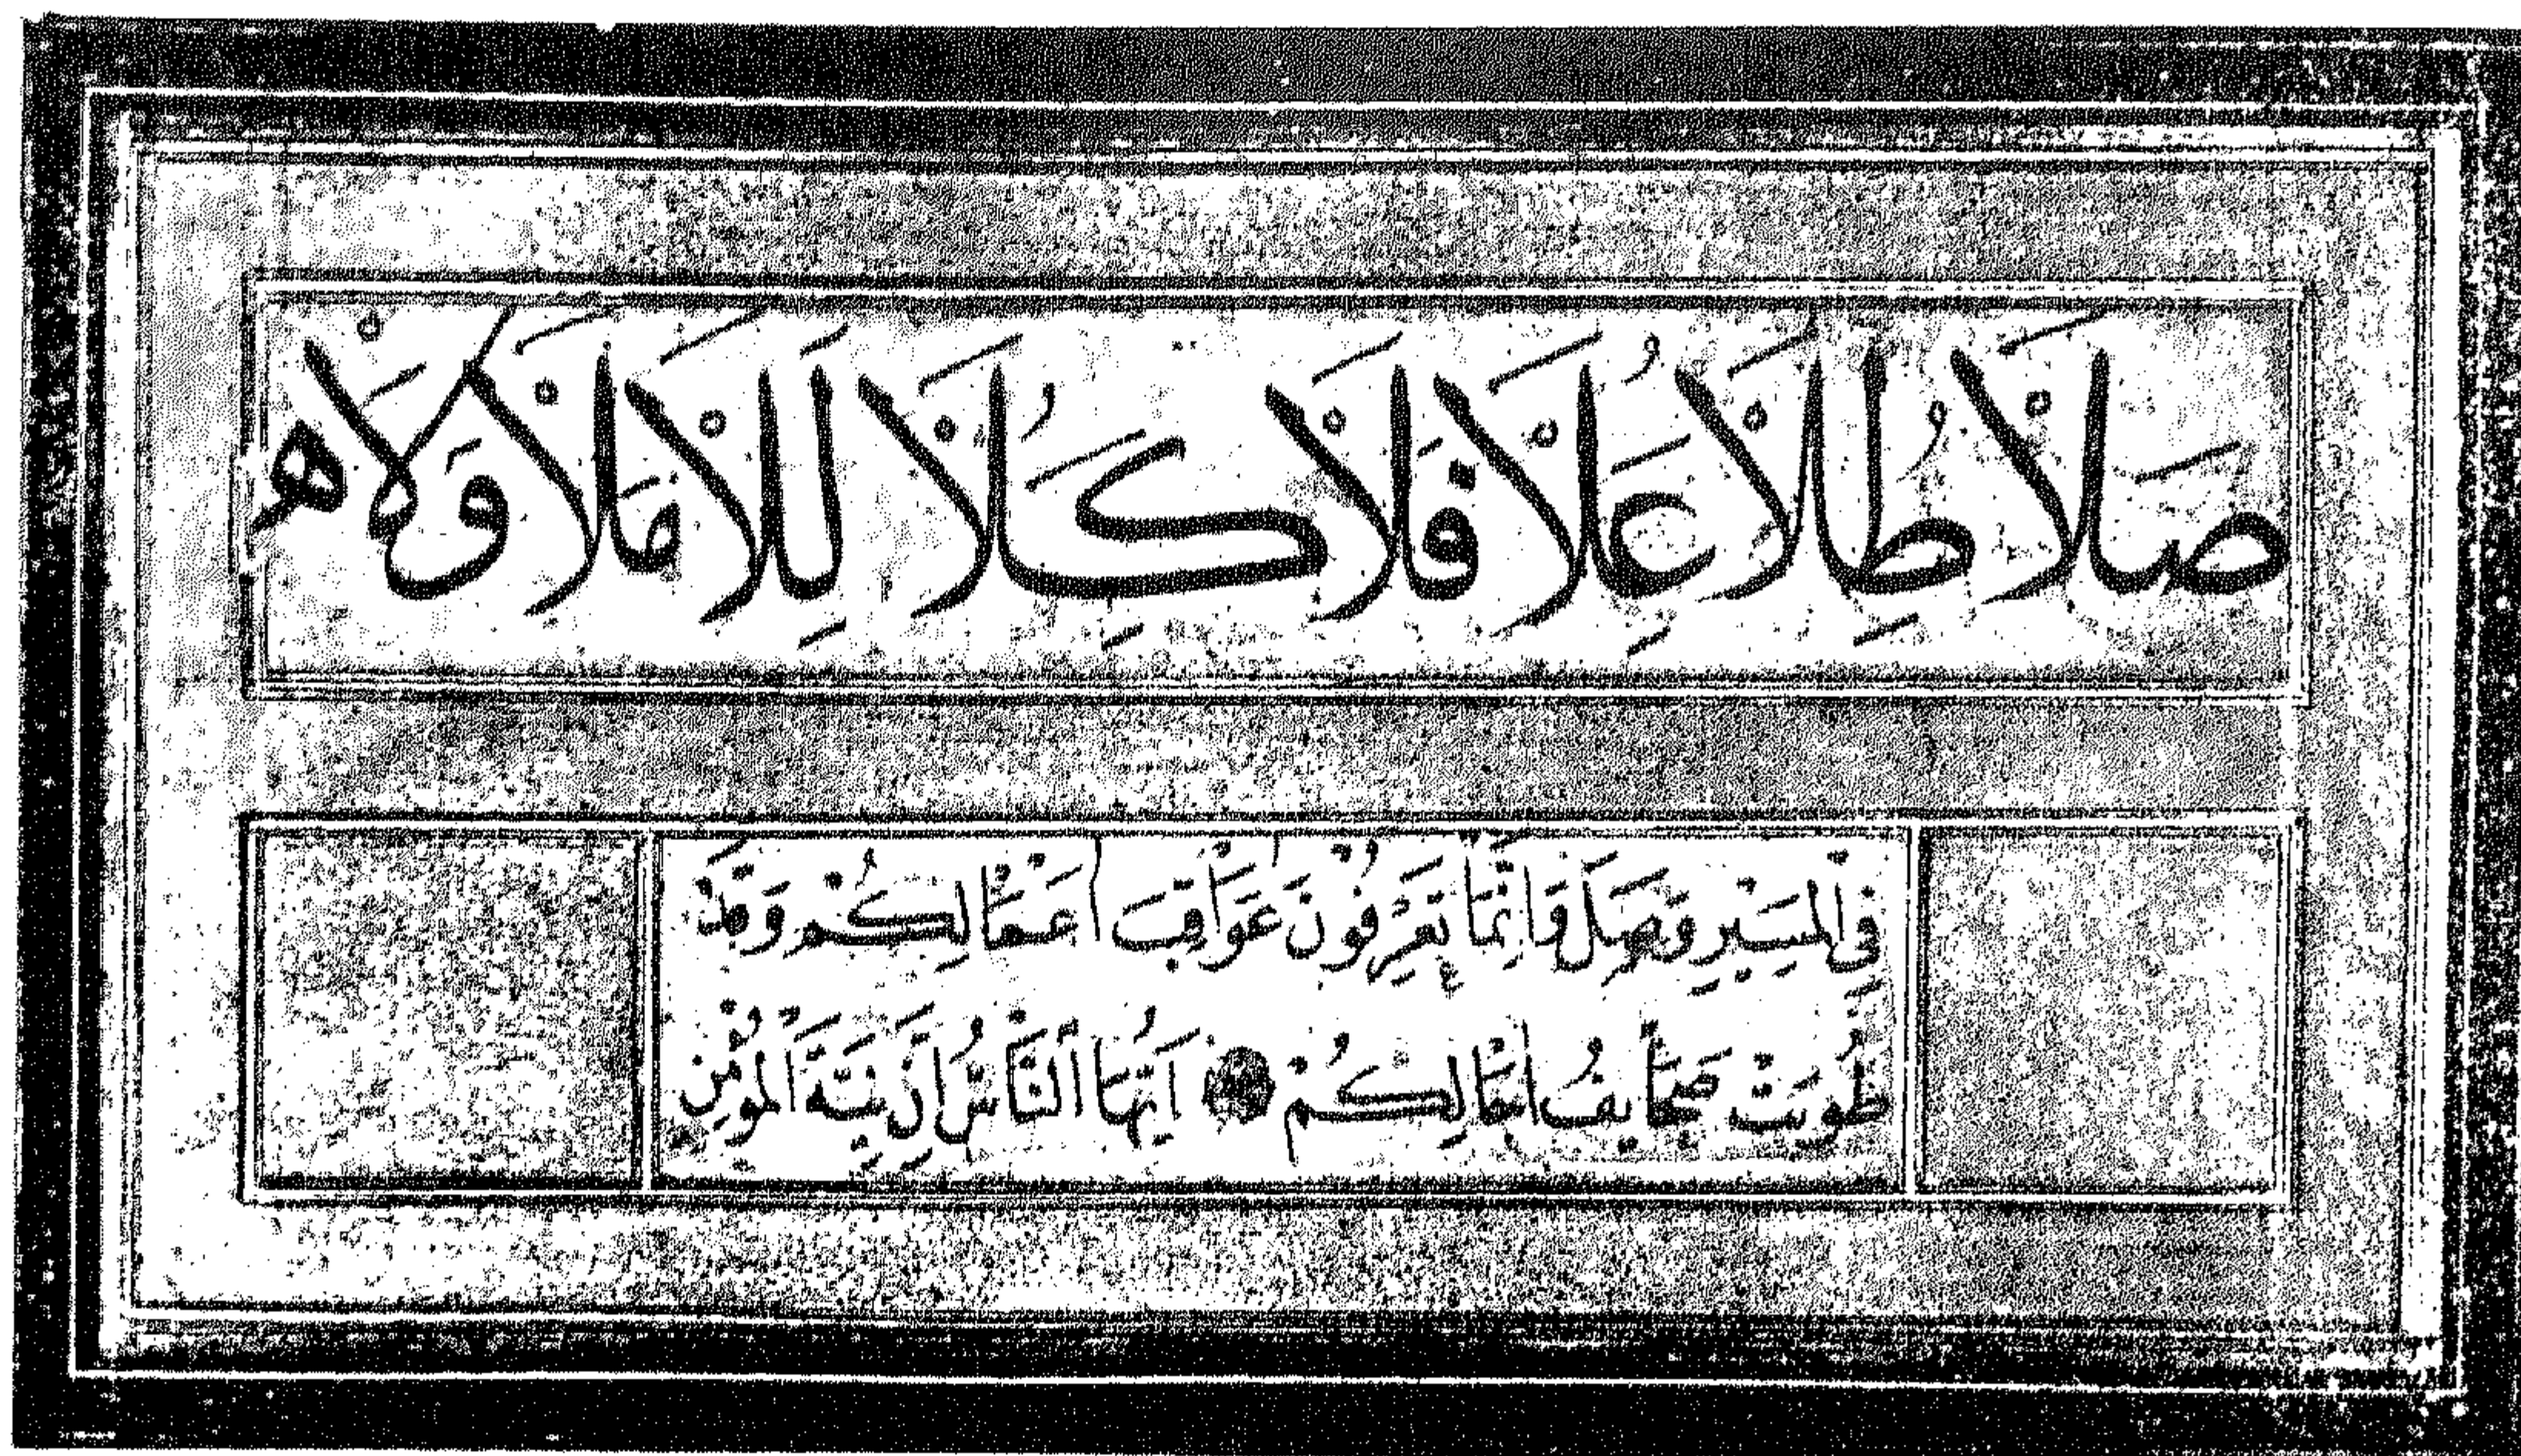 صَلاَ طِلاَ عِلاَ فَلاَ كِلاَ لِلاَ مَلاَ وَلاَ هـ
فِي الْمَسِيْرِ وَصَلَ وَاِنَّمَا تَعْرِفُونَ عَوَاقِبَ اَعْمَالِكُمْ وَقَدْ
طُوِيَتْ صَحَايِفُ اٰجَالِكُمْ اَيُّهَا النَّاسُ اِنَّ نِيَّةَ الْمُؤْمِنِ